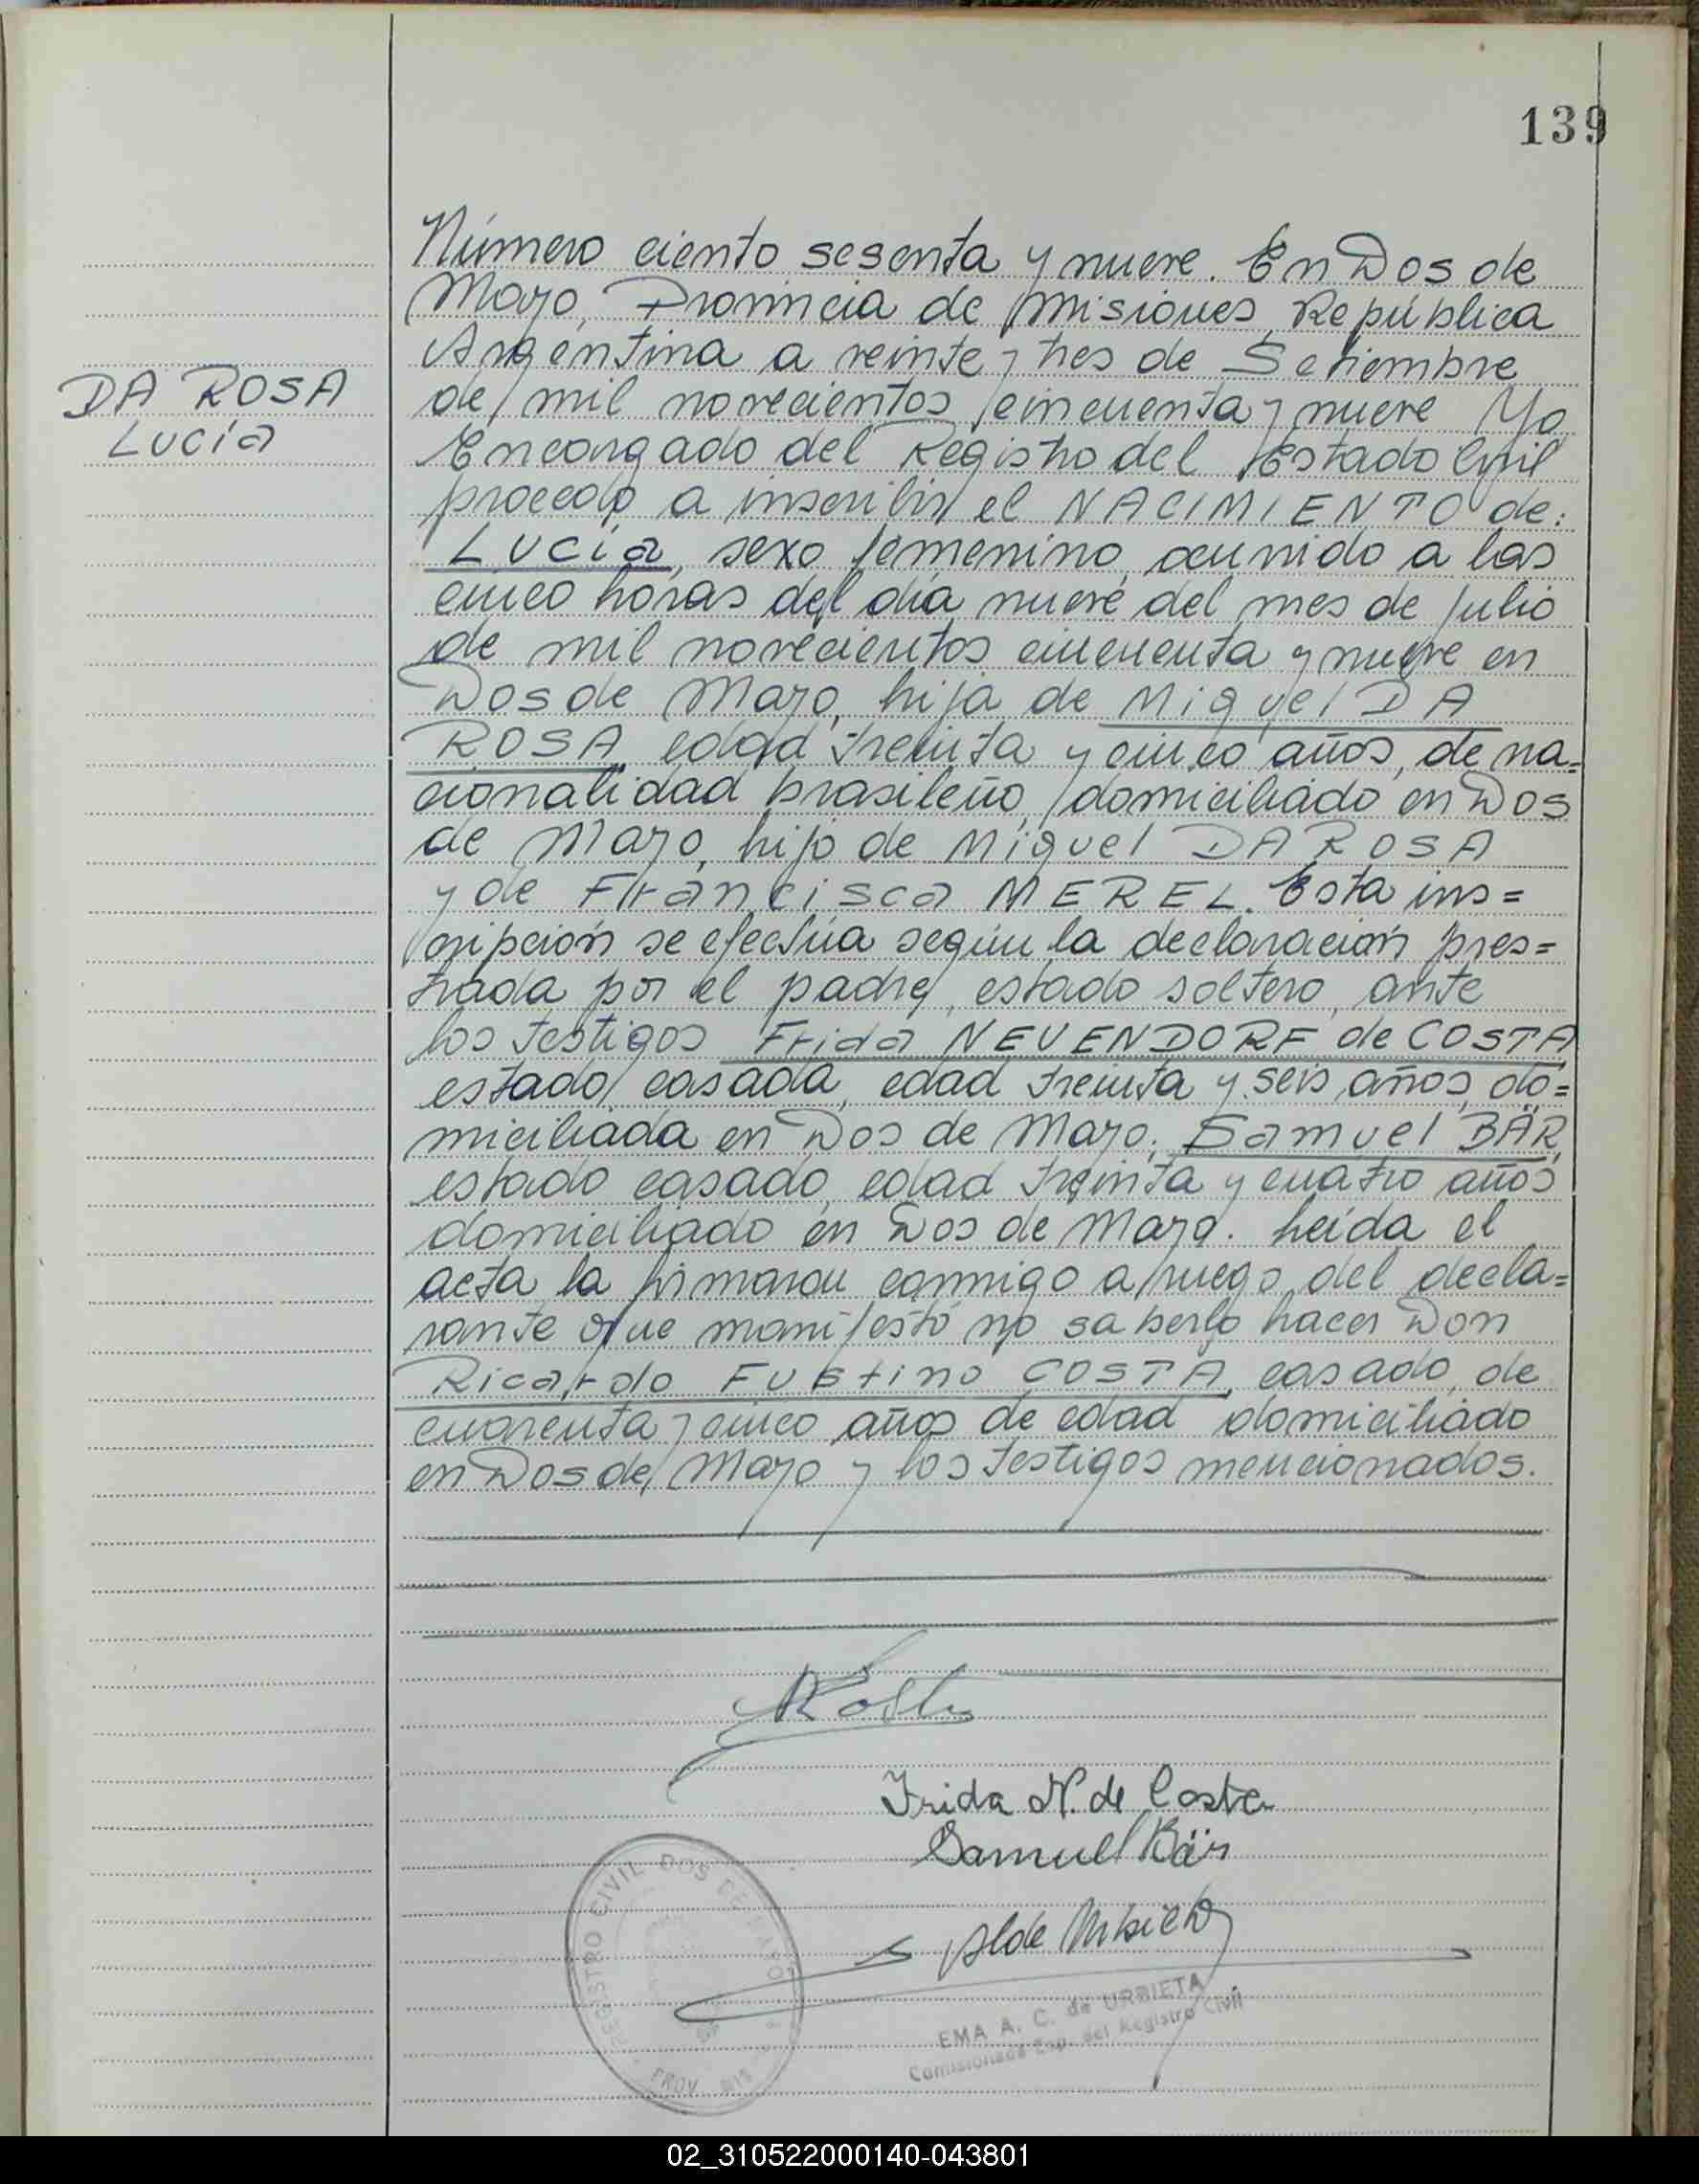 139
DA ROSA
Lucía
Número ciento sesenta y nueve. En Dos de
Mayo, Provincia de Misiones, República
Argentina a veinte y tres de Setiembre
de mil novecientos cincuenta y nueve Yo
Encargado del Registro del Estado Civil
procedo a inscribir el NACIMIENTO de:
Lucía, sexo femenino, ocurrido a las
cinco horas del día nueve del mes de Julio
de mil novecientos cincuenta y nueve en
Dos de Mayo, hija de Miguel DA
ROSA, edad treinta y cinco años, de na=
cionalidad brasileño, domiciliado en Dos
de Mayo, hijo de Miguel DA ROSA
y de Francisca MEREL. Esta ins=
cripción se efectúa según la declaración pres=
trada por el padre, estado soltero, ante
los testigos Frida NEUENDORF de COSTA
estado casada, edad treinta y seis años, do=
miciliada en Dos de Mayo; Samuel BÄR,
estado casado, edad treinta y cuatro años
domiciliado en Dos de Mayo. Leída el
acta la firmaron conmigo a ruego del decla=
rante que manifestó no saberlo hacer Don
Ricardo FUStino COSTA, casado, de
cuarenta y cinco años de edad domiciliado
en Dos de Mayo y los testigos mencionados.
Frida N. de Costa
Samuel Bär
REGISTRO CIVIL DOS DE MAYO
PROV. MIS.
EMA A. C. de URBIETA
Comisionada Enp. del Registro Civil
02_310522000140-043801